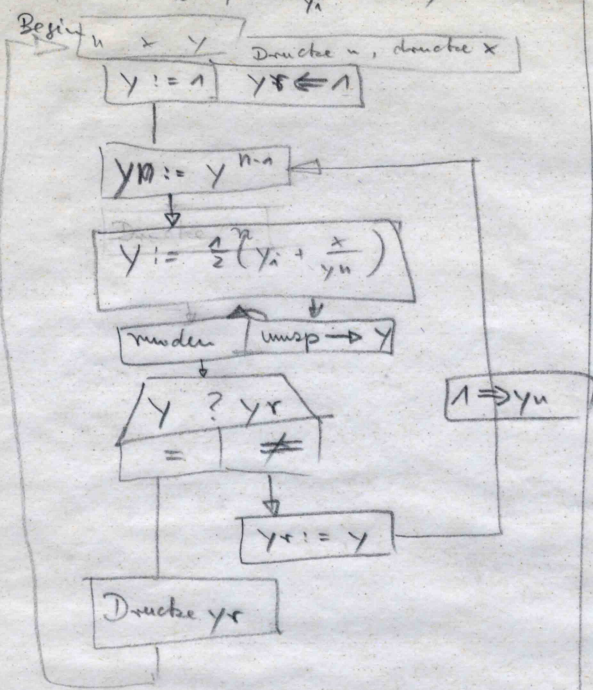 y₁
Begin
n x y
Drucke n, drucke x
y := 1 yr ⇐ 1
yn := y^(n-1)
y := 1/2 (y₁ + x/yn)
runden umsp → y
y ? yr
= ≠
1 ⇒ yn
yr := y
Drucke yr